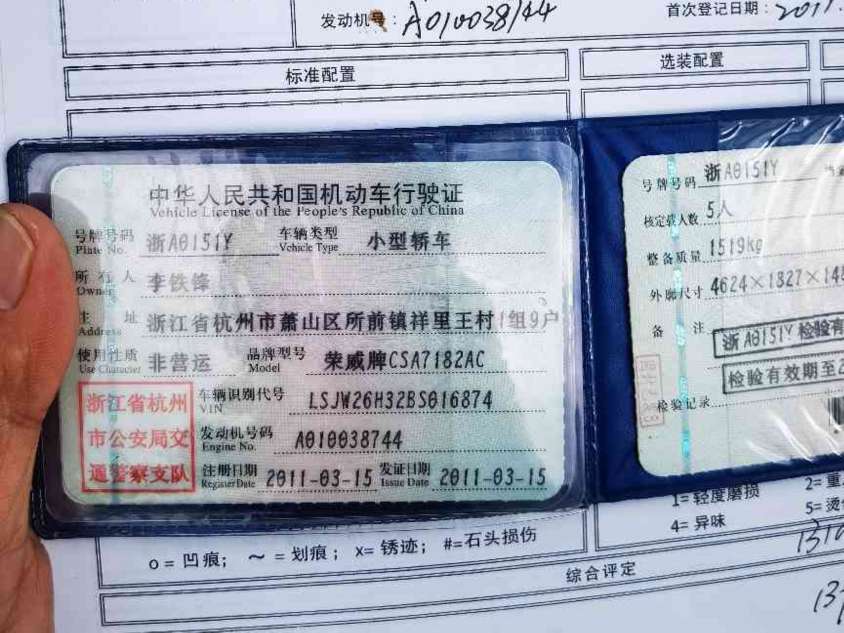 发动机号: A010038744
首次登记日期: 2011.
标准配置
选装配置
中华人民共和国机动车行驶证
Vehicle License of the People's Republic of China
号牌号码 浙A0151Y 车辆类型 小型轿车
Plate No. Vehicle Type
所有人 李铁锋
Owner
住址 浙江省杭州市萧山区所前镇祥里王村1组9户
Address
使用性质 非营运 品牌型号 荣威牌CSA7182AC
Use Character Model
浙江省杭州
市公安局交
通警察支队
车辆识别代号 LSJW26H32BS016874
VIN
发动机号码 A010038744
Engine No.
注册日期 2011-03-15 发证日期 2011-03-15
Register Date Issue Date
号牌号码 浙A0151Y
核定载人数 5人
整备质量 1519kg
外廓尺寸 4624×1827×148
备注
浙A0151Y 检验有
检验有效期至2
检验记录
o=凹痕; ~=划痕; x=锈迹; #=石头损伤
1=轻度磨损 2=重
4=异味 5=烫
综合评定